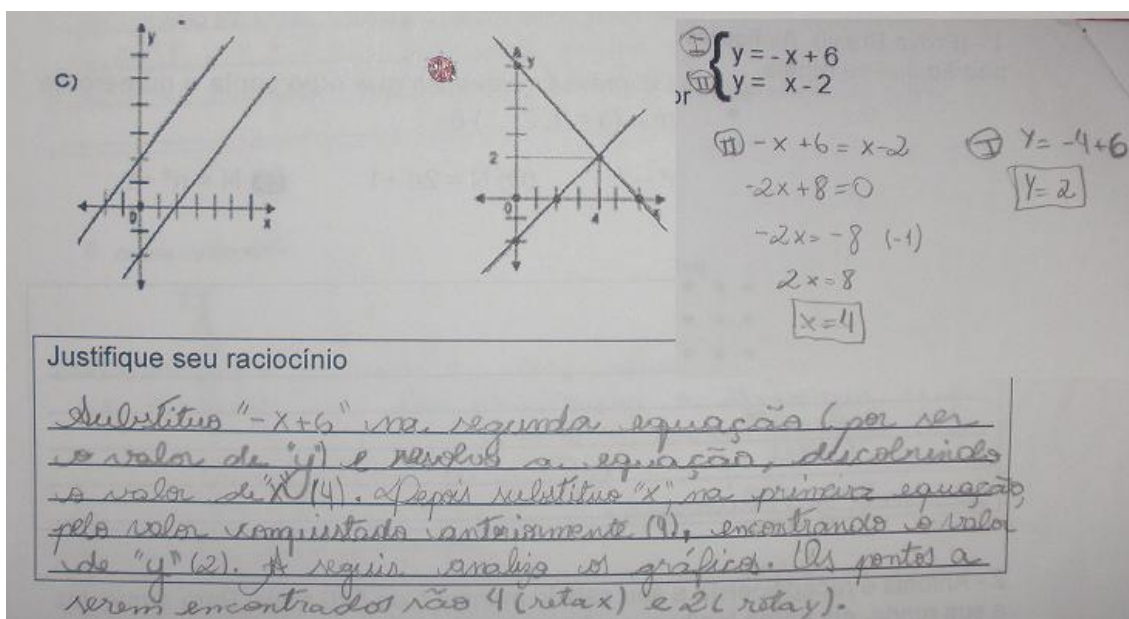 C)
y
0
x
y
2
0
4
x
or
I y = -x + 6
II y = x - 2
II -x + 6 = x - 2
-2x + 8 = 0
-2x = -8 (-1)
2x = 8
x = 4
I y = -4 + 6
y = 2
Justifique seu raciocínio
Substituo "-x+6" na segunda equação (por ser
o valor de "y") e resolvo a equação, descobrindo
o valor de "x" (4). Depois substituo "x" na primeira equação,
pelo valor conquistado anteriormente (4), encontrando o valor
de "y" (2). A seguir analiso os gráficos. Os pontos a
serem encontrados são 4 (reta x) e 2 (reta y).